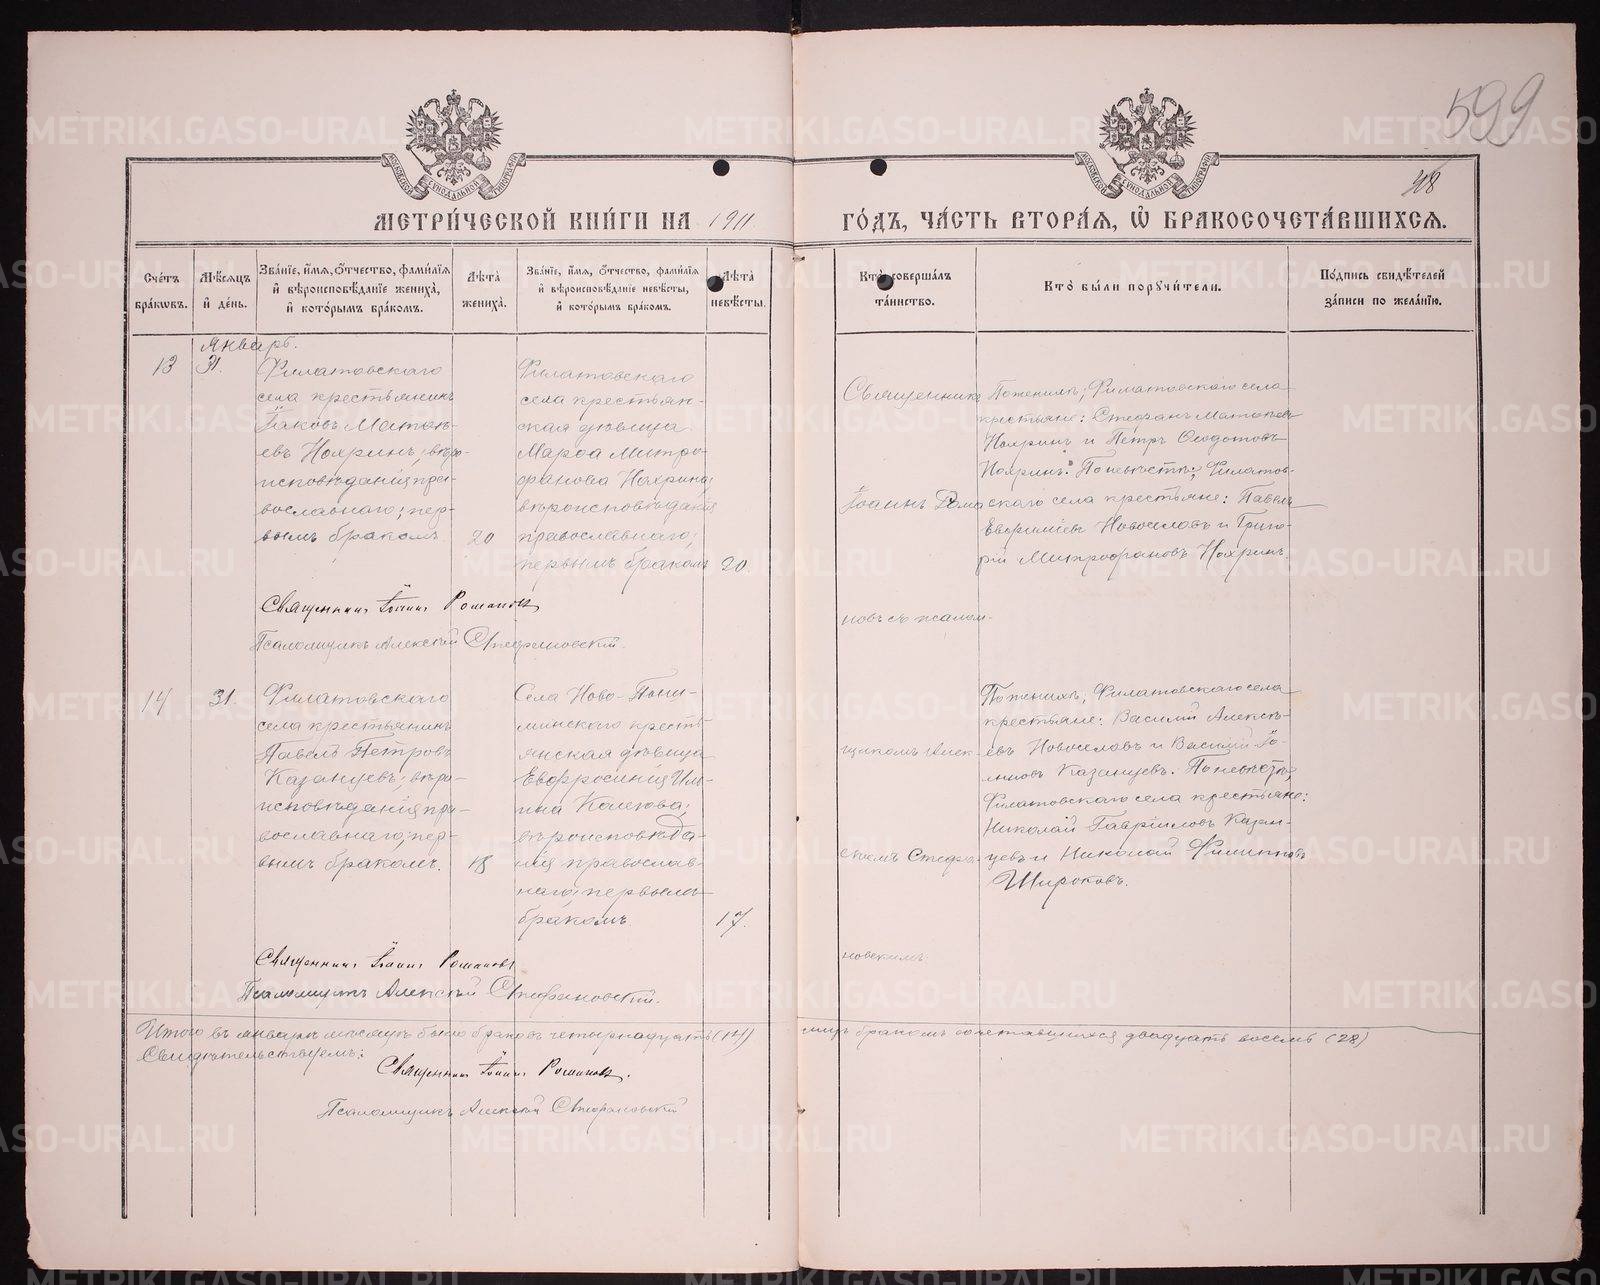 599
МЕТРИ́ЧЕСКОЙ КНИ́ГИ НА 1911
ГО́ДЪ, ЧА́СТЬ ВТОРА́Я, Ѽ БРАКОСОЧЕТА́ВШИХСЯ.
Сче́тъ бра́кѡвъ.
Мѣ́сяцъ и҆ де́нь.
Зва́нїе, и҆́мя, ѻ҆́тчество, фами́лїя
и҆ вѣроисповѣ́данїе жениха̀,
и҆ кото́рымъ бра́комъ.
Лѣ́та жениха̀.
Зва́нїе, и҆́мя, ѻ҆́тчество, фами́лїя
и҆ вѣроисповѣ́данїе невѣ́сты,
и҆ кото́рымъ бра́комъ.
Лѣ́та невѣ́сты.
Кто̀ соверша́лъ
та́инство.
Кто̀ бы́ли порꙋчи́тели.
По́дпись свидѣ́телей
за́писи по жела́нїю.
Январь.
13
31.
Филатовскаго
села крестьянинъ
Іаковъ
евъ Нохринъ; вѣро-
исповѣданія пра-
вославнаго; пер-
вымъ бракомъ
20
Филатовскаго
села крестьян-
ская дѣвица
Марѳа Митро-
фанова Нохрина;
вѣроисповѣданія
православнаго;
первымъ бракомъ
20
Священникъ
Іоаннъ Рома
новъ съ псалом-
По женихѣ; Филатовскаго села
крестьяне: Стефанъ
Нохринъ и Петръ Ѳеодотовъ
Нохринъ. По невѣстѣ; Филатов-
скаго села крестьяне: Павелъ
Новоселовъ и Григо-
рій Митрофановъ Нохринъ.
Священникъ Іоаннъ Романовъ
Псаломщикъ Алексѣй Стефановскій.
14
31.
Филатовскаго
села крестьянинъ
Павелъ Петровъ
Казанцевъ; вѣро-
исповѣданія пра-
вославнаго; пер-
вымъ бракомъ.
18
Села Ново-
минскаго кресть-
янская дѣвица
Евфросинія Иль-
ина
вѣроисповѣда-
нія православ-
наго; первымъ
бракомъ
17.
щикомъ Алек-
сѣемъ Стефа-
новскимъ.
По женихѣ; Филатовскаго села
крестьяне: Василій Алексѣ-
евъ Новоселовъ и Василій
Казанцевъ. По невѣстѣ;
Филатовскаго села крестьяне:
Николай Гавріиловъ Казан-
цевъ и Николай Филипповъ
Широковъ.
Священникъ Іоаннъ Романовъ
Псаломщикъ Алексѣй Стефановскій.
Итого въ январѣ мѣсяцѣ было браковъ четырнадцать (14)
бракомъ сочетавшихся двадцать восемь (28)
Свидѣтельствуемъ:
Священникъ Іоаннъ Романовъ.
Псаломщикъ Алексѣй Стефановскій
METRIKI.GASO-URAL.RU